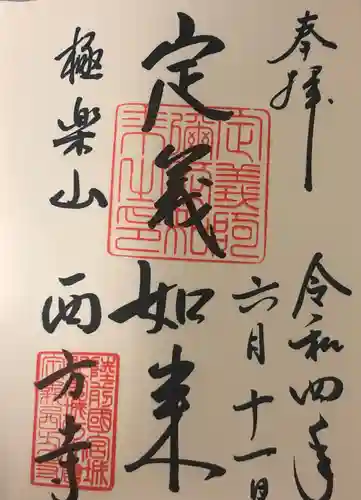 奉拝
令和四年
六月十一日
定義如来
極楽山
西方寺